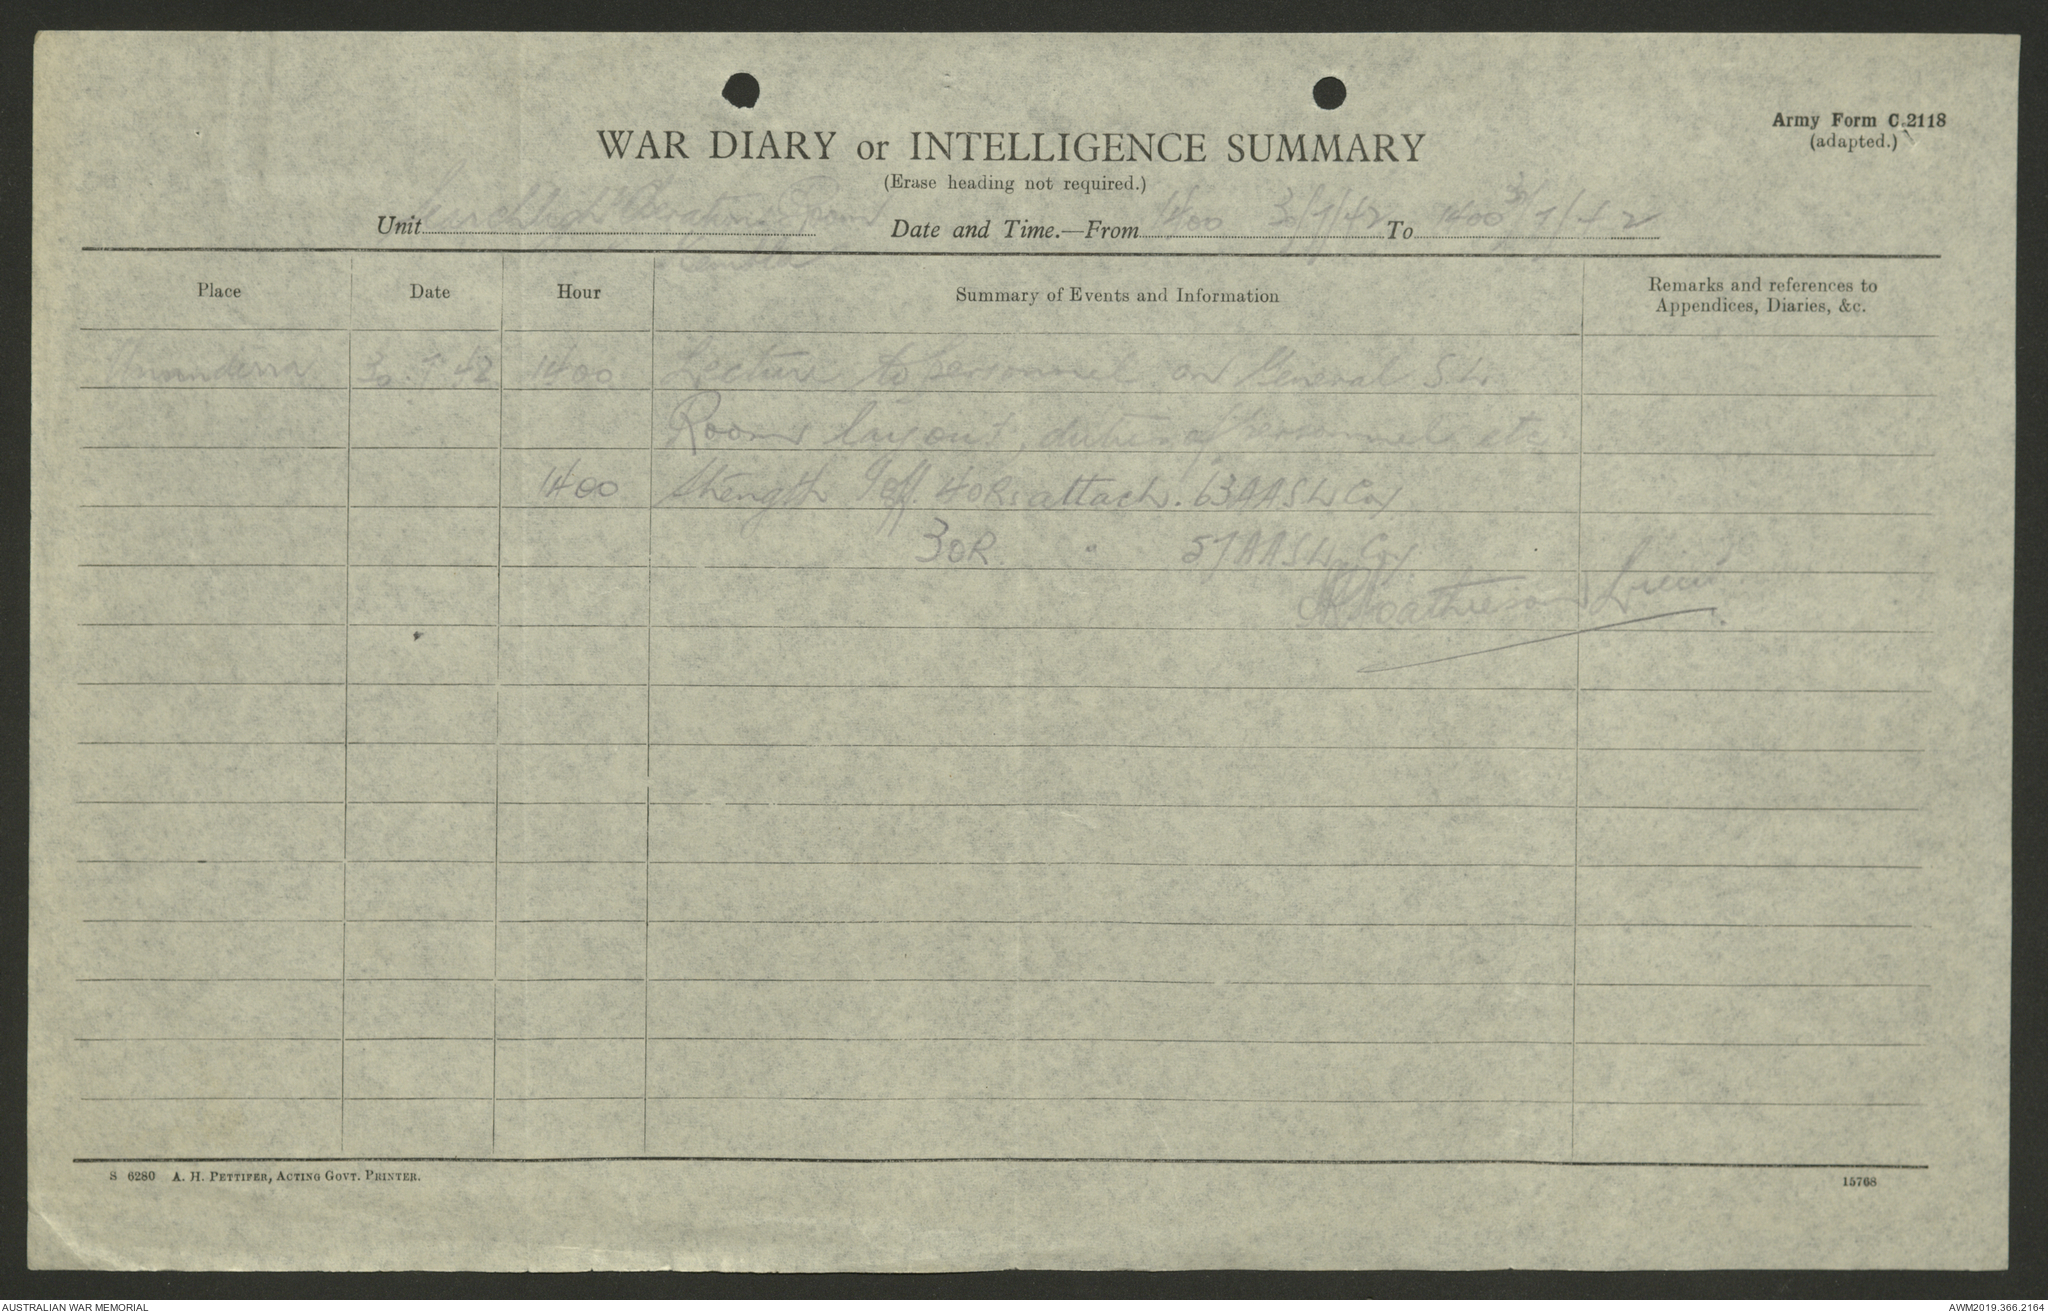 Army Form C.2118
(adapted.)
WAR DIARY or INTELLIGENCE SUMMARY
(Erase heading not required.)
Unit Searchlight Operations Room
Kembla
Date and Time.—From 1400 30/7/42 To 1400 31/7/42
Place Date Hour Summary of Events and Information Remarks and references to
Appendices, Diaries, &c.
Unanderra 30.7.42 1400 Lecture to personnel on General S.L.
Rooms layout, duties of personnel etc
1400 Strength 1 off. 4 ORs attach. 63 AASL Coy
3 OR. " 57 AASL Coy.
Mathieson Lieut.
S 6280 A. H. PETTIFER, ACTING GOVT. PRINTER.
15768
AUSTRALIAN WAR MEMORIAL
AWM2019.366.2164